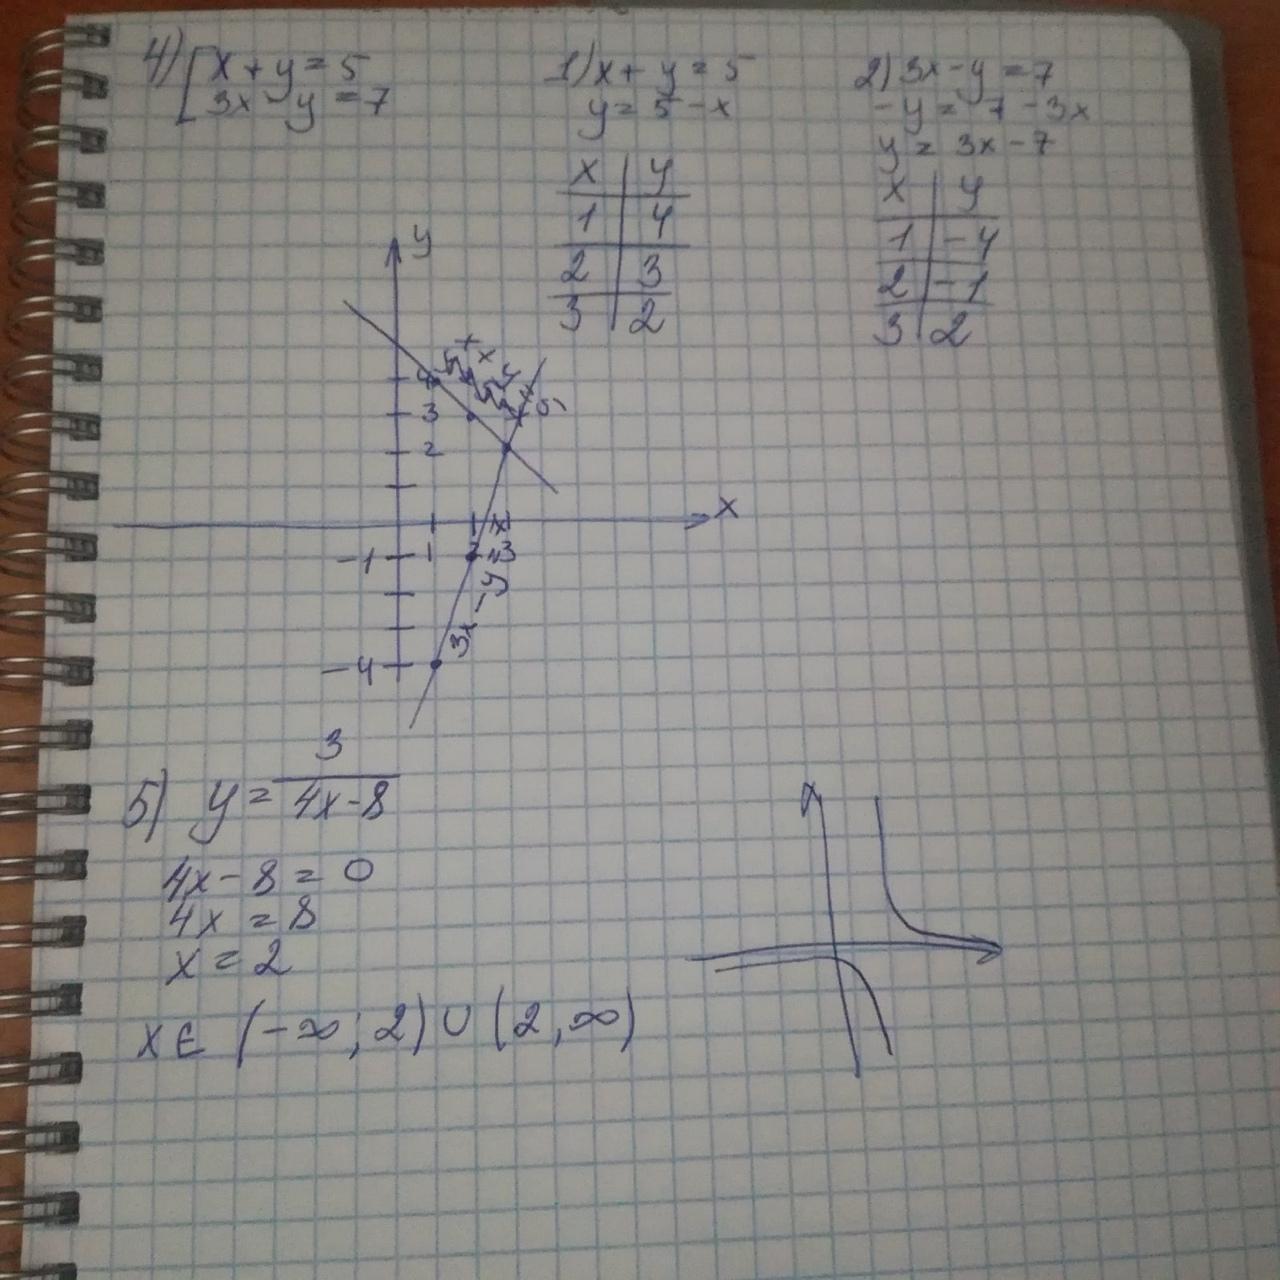 4) [ x + y = 5
3x - y = 7
1) x + y = 5
y = 5 - x
x | y
1 | 4
2 | 3
3 | 2
2) 3x - y = 7
-y = 7 - 3x
y = 3x - 7
x | y
1 | -4
2 | -1
3 | 2
y
4
3
2
x
-1 1 2 3
-4
3x - y
5) y = 3 / (4x - 8)
4x - 8 = 0
4x = 8
x = 2
x ∈ (-∞; 2) ∪ (2, ∞)